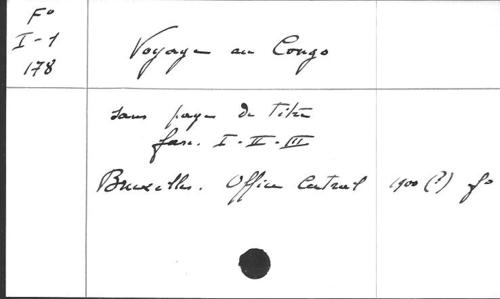 Fº
I-1
178
Voyage au Congo
sans page de titre
fasc. I-II-III
Bruxelles. Office Central 1900 (?) fº